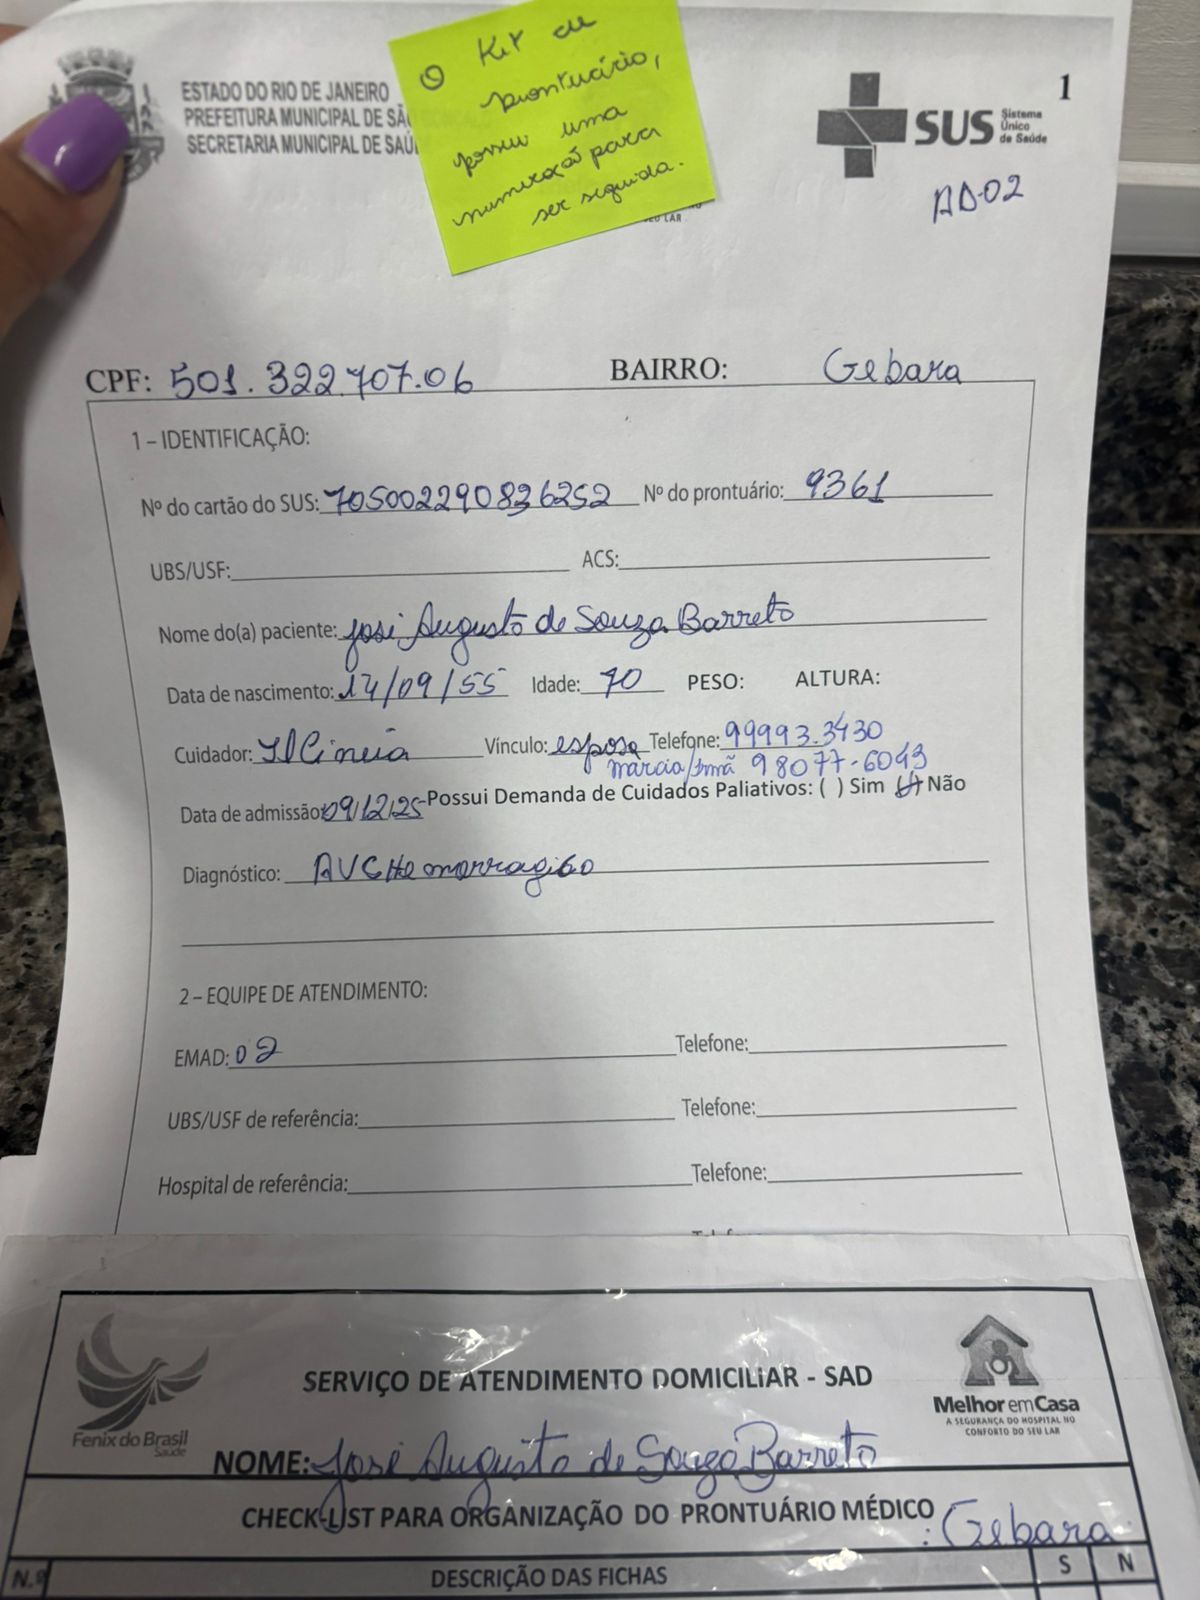 O Kit de
prontuário,
possui uma
numeração para
ser seguida.
ESTADO DO RIO DE JANEIRO
PREFEITURA MUNICIPAL DE SÃO
SECRETARIA MUNICIPAL DE SAÚ
SEU LAR
SUS Sistema Único de Saúde
1
AD-02
CPF: 501.322.707.06 BAIRRO: Gebara
1 – IDENTIFICAÇÃO:
Nº do cartão do SUS: 705002290836252 Nº do prontuário: 9361
UBS/USF: ACS:
Nome do(a) paciente: José Augusto de Souza Barreto
Data de nascimento: 14/09/55 Idade: 70 PESO: ALTURA:
Cuidador: Ilcineia Vínculo: esposa Telefone: 99993.3430
Marcia/Irmã 98077-6043
Data de admissão: 09/12/25 - Possui Demanda de Cuidados Paliativos: ( ) Sim (x) Não
Diagnóstico: AVC Hemorragico
2 – EQUIPE DE ATENDIMENTO:
EMAD: 02 Telefone:
UBS/USF de referência: Telefone:
Hospital de referência: Telefone:
Fenix do Brasil
Saúde
SERVIÇO DE ATENDIMENTO DOMICILIAR - SAD
Melhor em Casa
A SEGURANÇA DO HOSPITAL NO
CONFORTO DO SEU LAR
NOME: José Augusto de Souza Barreto
CHECK-LIST PARA ORGANIZAÇÃO DO PRONTUÁRIO MÉDICO : Gebara
N.º DESCRIÇÃO DAS FICHAS S N